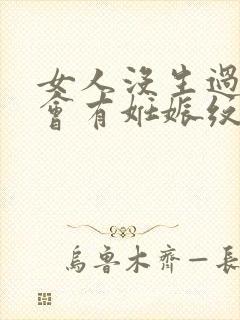 女人没生過
會有妊娠紋
烏魯木齊一長